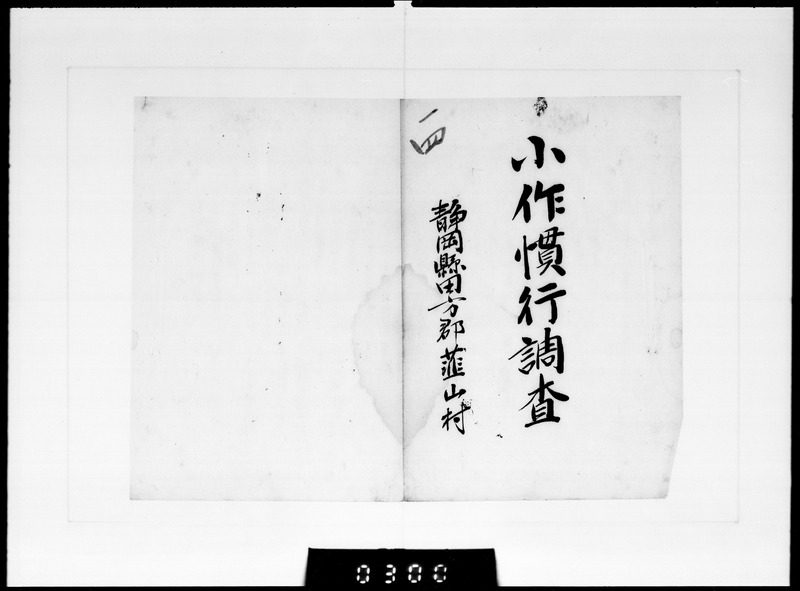 小作慣行調査
静岡縣田方郡韮山村
一四
0300